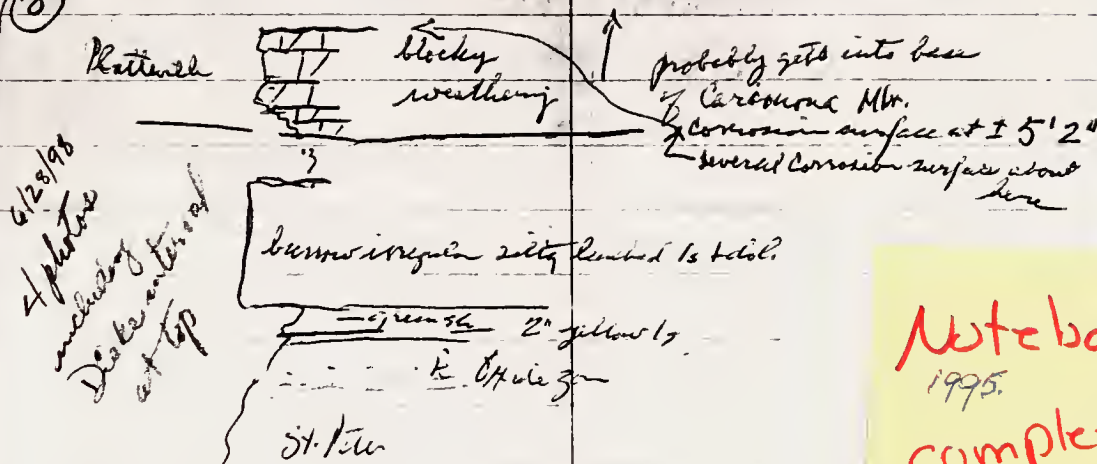 Platteville
blocky
weathering
probably gets into base
of Carimona Mbr.
corrosion surface at ± 5' 2"
several corrosion surface about
here
6/28/98
4 photos
including
interval
at top
burrow irregular silty bedded ls + dol.
greenish 2" yellow ls
St. Peter
Notebo
1995.
comple